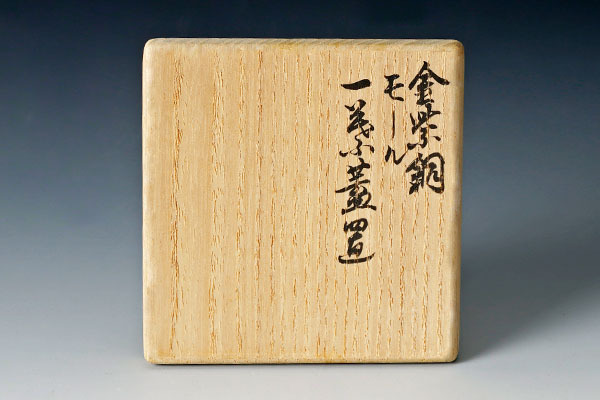 金紫銅
モール
一葉蓋置